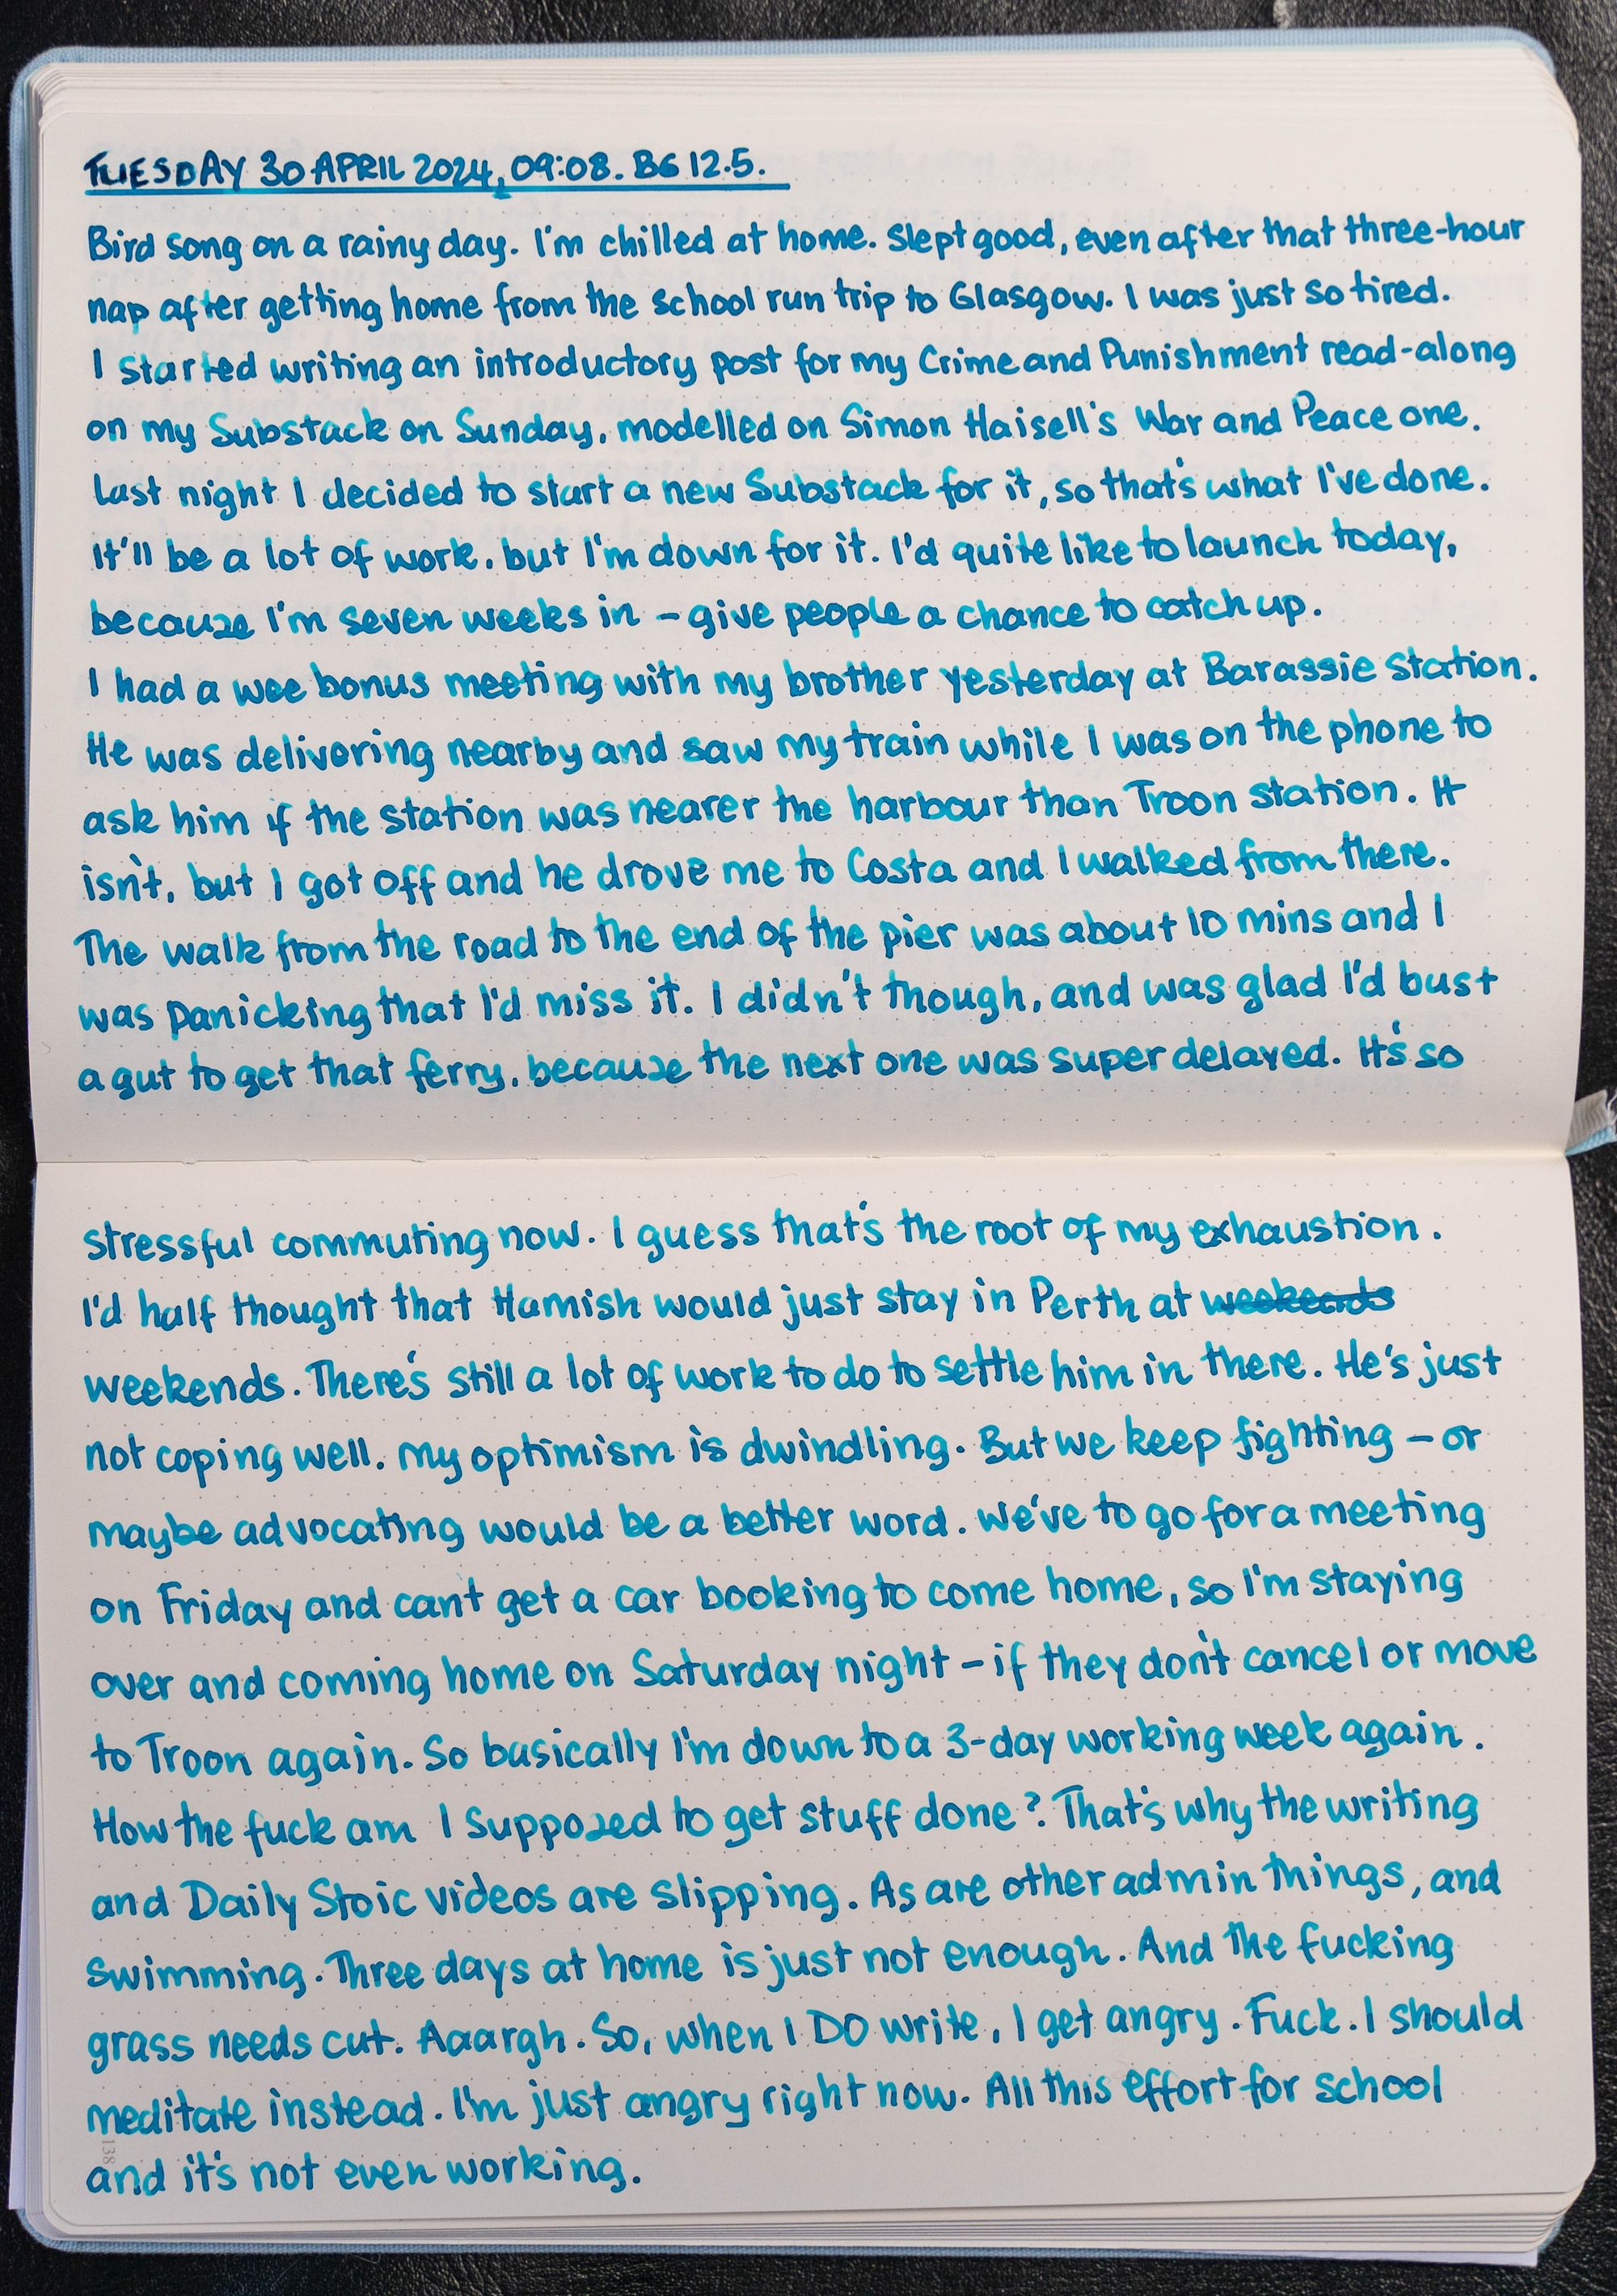 TUESDAY 30 APRIL 2024, 09:08. BG 12.5.
Bird song on a rainy day. I'm chilled at home. Slept good, even after that three-hour
nap after getting home from the school run trip to Glasgow. I was just so tired.
I started writing an introductory post for my Crime and Punishment read-along
on my Substack on Sunday, modelled on Simon Haisell's War and Peace one.
Last night I decided to start a new Substack for it, so that's what I've done.
It'll be a lot of work, but I'm down for it. I'd quite like to launch today,
because I'm seven weeks in – give people a chance to catch up.
I had a wee bonus meeting with my brother yesterday at Barassie Station.
He was delivering nearby and saw my train while I was on the phone to
ask him if the station was nearer the harbour than Troon station. It
isn't, but I got off and he drove me to Costa and I walked from there.
The walk from the road to the end of the pier was about 10 mins and I
was panicking that I'd miss it. I didn't though, and was glad I'd bust
a gut to get that ferry, because the next one was super delayed. It's so
stressful commuting now. I guess that's the root of my exhaustion.
I'd half thought that Hamish would just stay in Perth at weekends
weekends. There's still a lot of work to do to settle him in there. He's just
not coping well. My optimism is dwindling. But we keep fighting – or
maybe advocating would be a better word. We've to go for a meeting
on Friday and can't get a car booking to come home, so I'm staying
over and coming home on Saturday night – if they don't cancel or move
to Troon again. So basically I'm down to a 3-day working week again.
How the fuck am I supposed to get stuff done? That's why the writing
and Daily Stoic videos are slipping. As are other admin things, and
swimming. Three days at home is just not enough. And the fucking
grass needs cut. Aaargh. So, when I DO write, I get angry. Fuck. I should
meditate instead. I'm just angry right now. All this effort for school
and it's not even working.
138